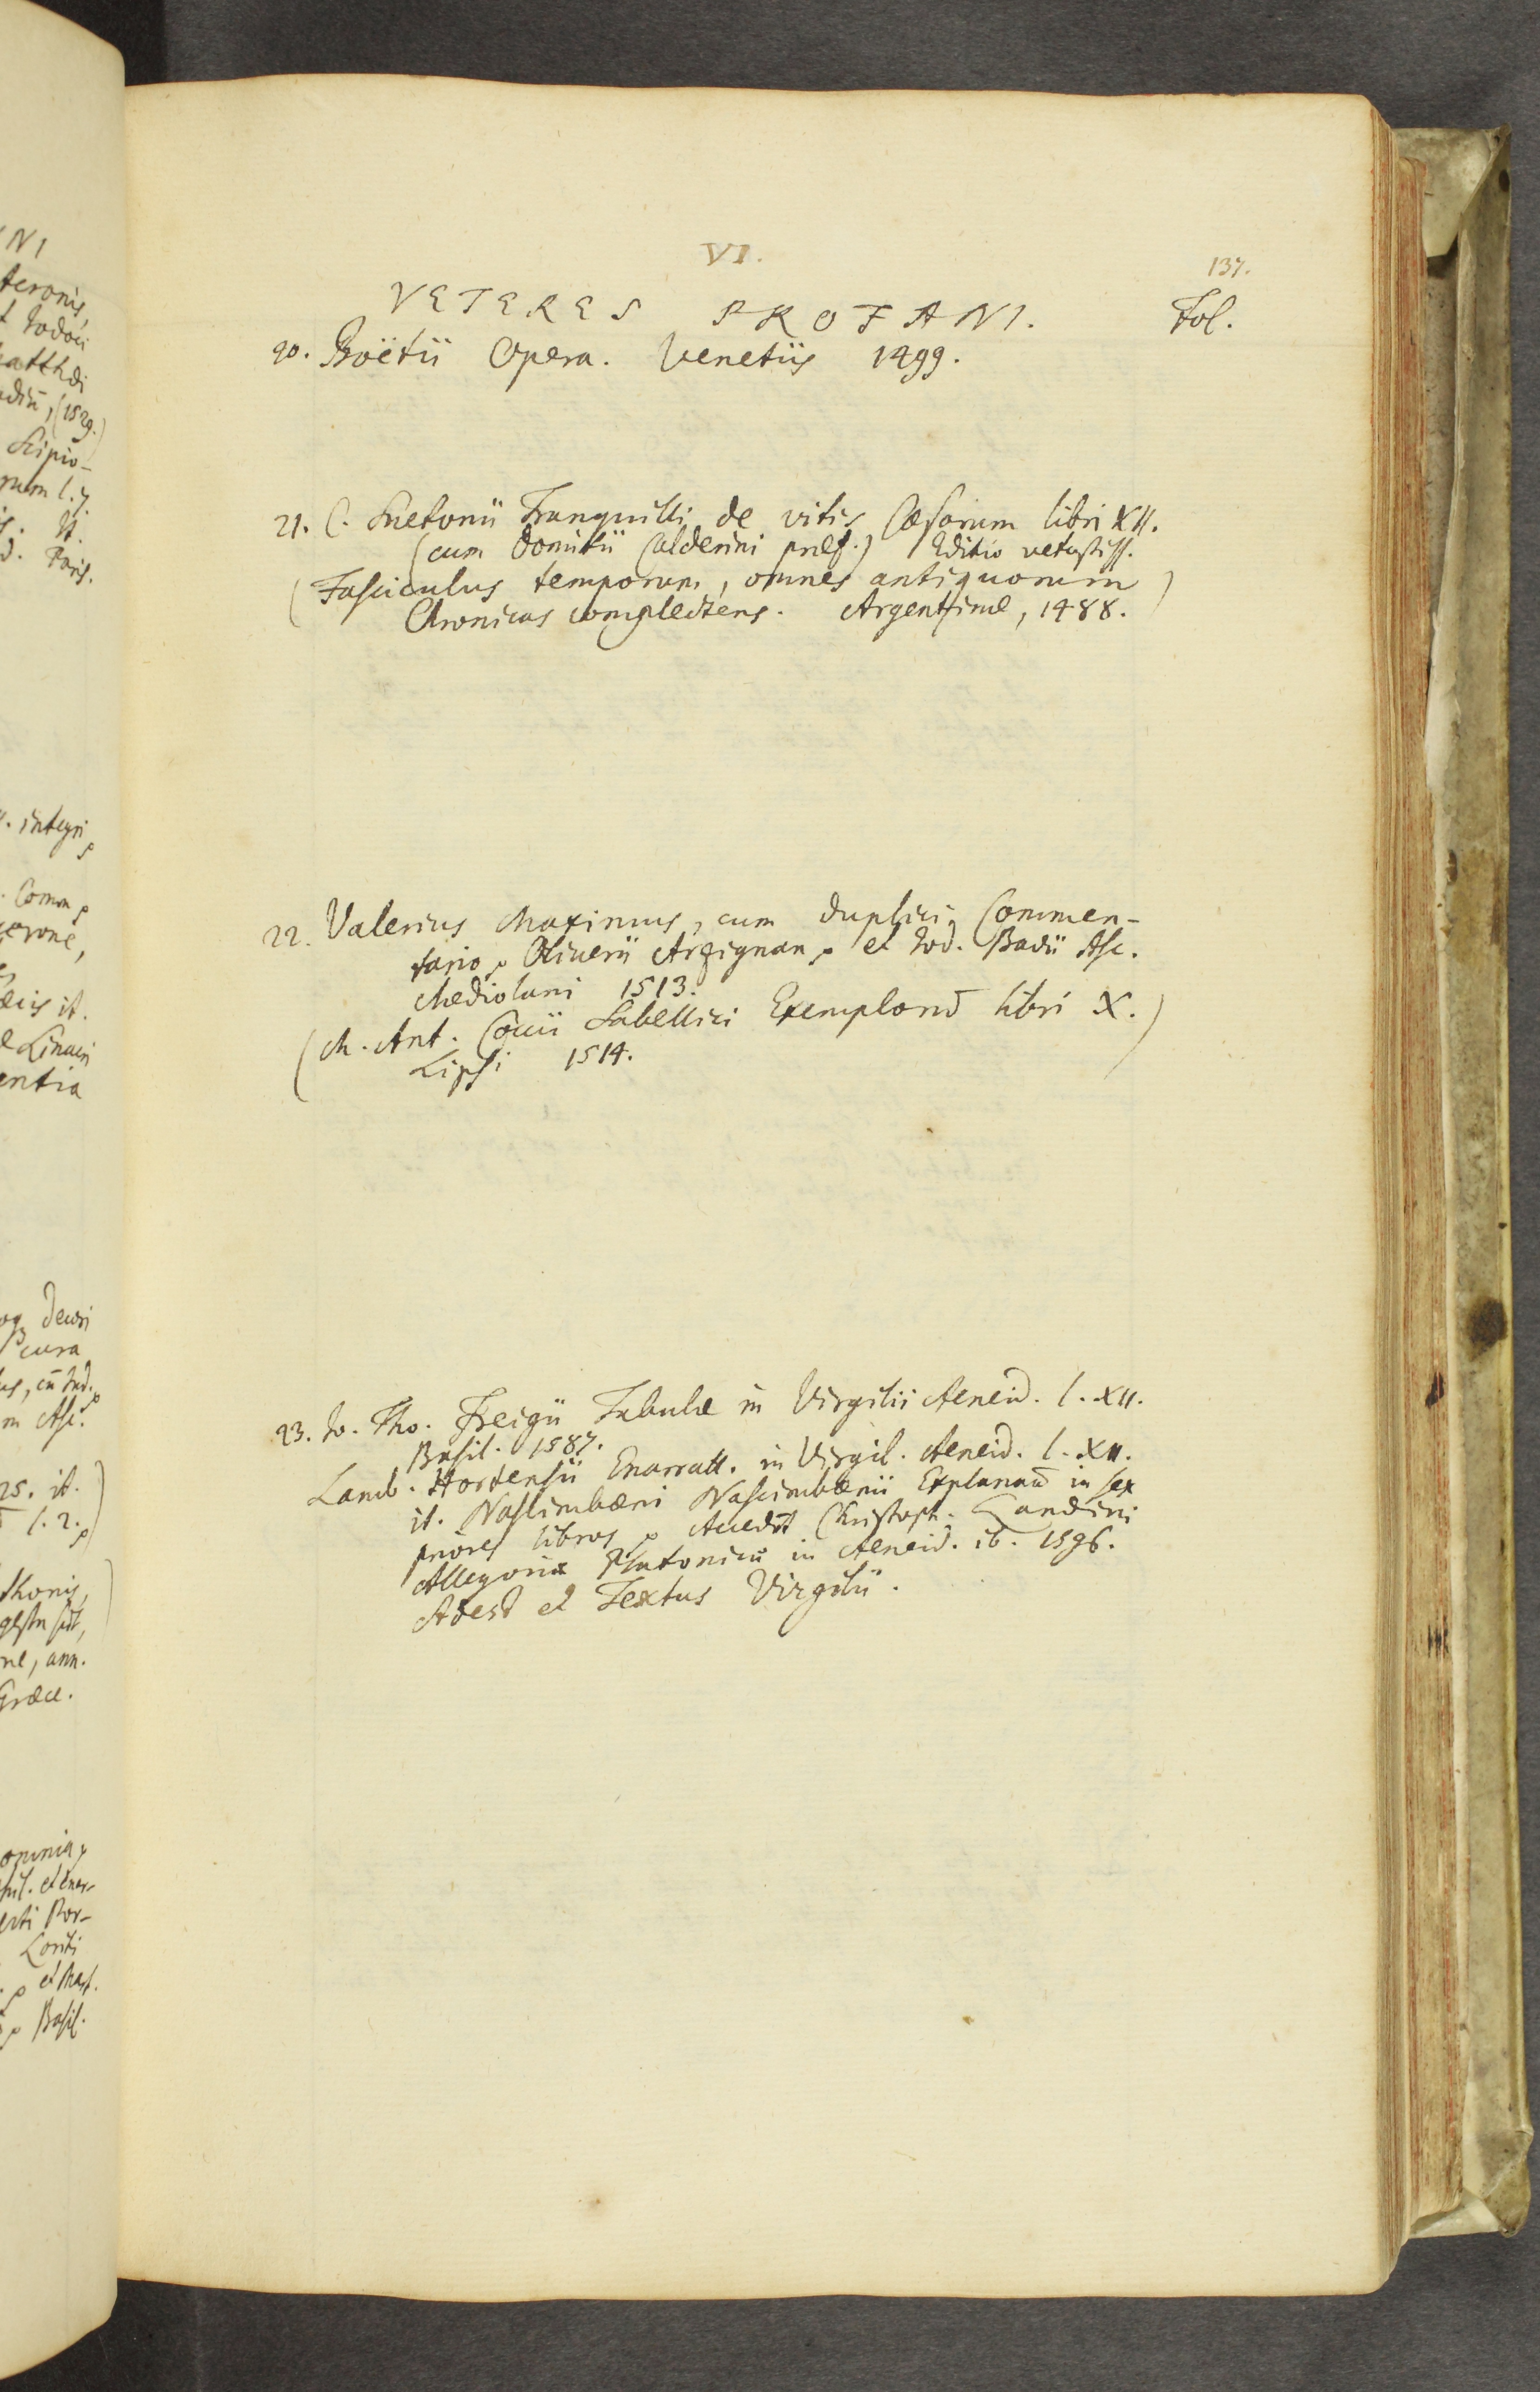 VI.
137.
VETERES PROFANI. Fol.
20. Boëtii Opera. Venetiis 1499.
21. C. Suetonii Tranquilli de vitis Cæsarum libri XII.
(cum Domitii Calderini præf.) Editio vetustiss.
(Fasciculus temporum, omnes antiquorum
Chronicas complectens. Argentinæ, 1488.)
22. Valerius Maximus, cum duplici Commen-
tario, Oliverii Arzignan, et Iod. Badii Asc.
Mediolani 1513.
(M. Ant. Coccii Sabellici Exemplorū libri X.)
Lipsi 1514.
23. Io. Tho. Freigii Tabulæ in Virgilii Aeneid. l. XII.
Basil. 1587.
Lamb. Hortensii Enarratt. in Virgil. Aeneid. l. XII.
it. Nascimbæni Nascimbænii Explanatt in sex
priores libros, Accedūt Christoph. Landini
Allegoriæ Platonicæ in Aeneid. ib. 1596.
Adest et Textus Virgilii.
NI
Scipio-
Paris.
integri
Comm
Linacri
entia
cura
Asc.
25. it.
l. 2.
ann.
Græce.
omnia
Basil.